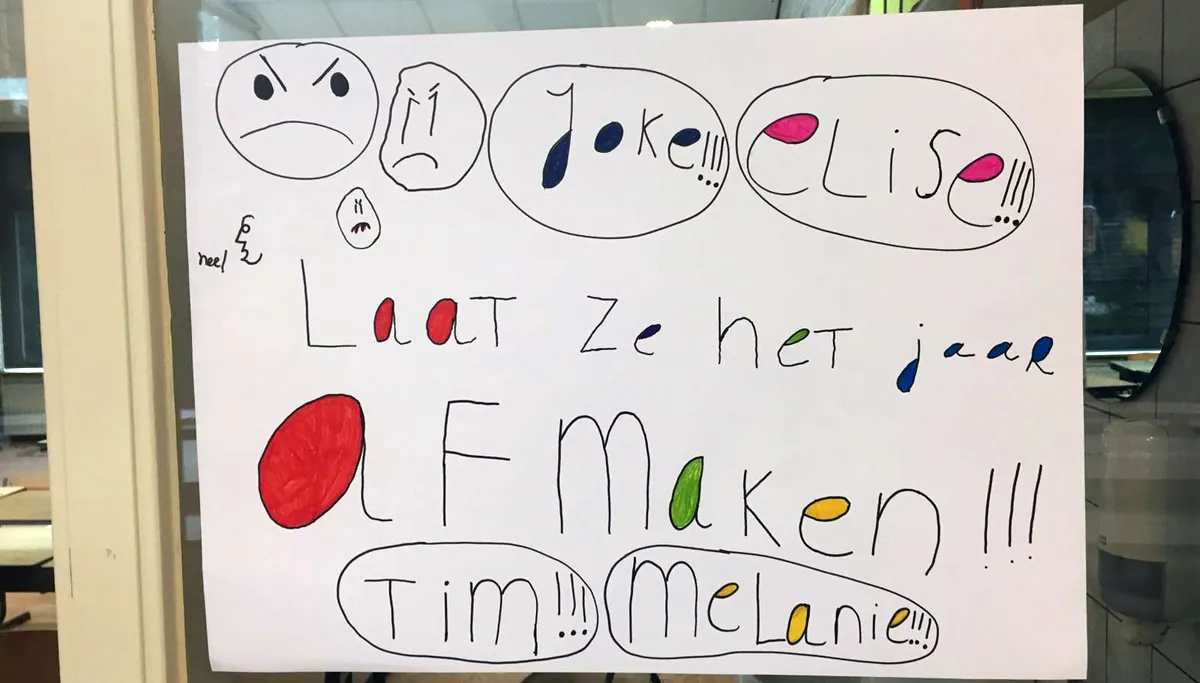 Joke!!! eLiSe!!!
Laat ze het jaar
aF maken!!!
Tim!!! MeLanie!!!